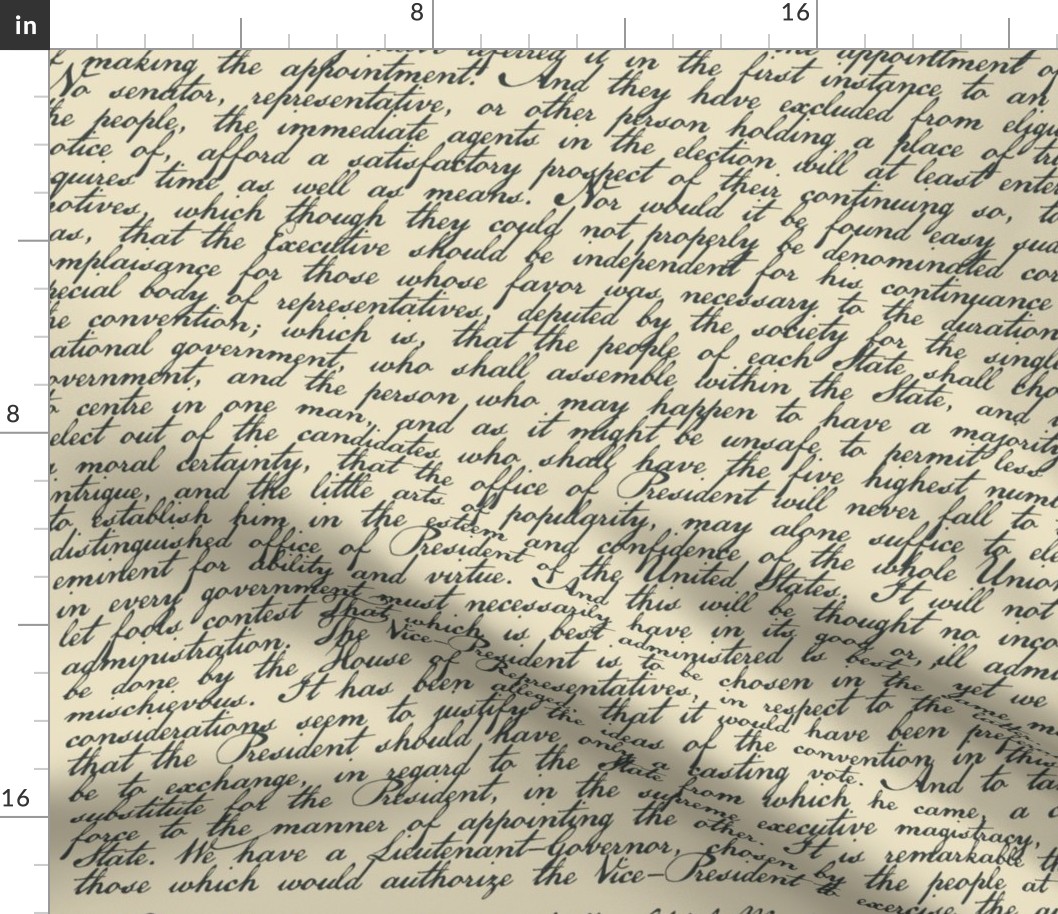 have referred it in the first instance to an
making the appointment. And they have excluded from eligi
No senator, representative, or other person holding a place of tru
he people, the immediate agents in the election will at least enter
otice of, afford a satisfactory prospect of their continuing so, to
quires time as well as means. Nor would it be found easy sud
otives, which though they could not properly be denominated cor
as, that the Executive should be independent for his continuance
mplaisance for those whose favor was necessary to the duration
pecial body of representatives, deputed by the society for the single
he convention; which is, that the people of each State shall cho
ational government, who shall assemble within the State, and
overnment, and the person who may happen to have a majority
centre in one man, and as it might be unsafe to permit less
elect out of the candidates who shall have the five highest num
moral certainty, that the office of President will never fall to
ntrigue, and the little arts of popularity, may alone suffice to ele
to establish him in the esteem and confidence of the whole Union
distinguished office of President of the United States. It will not
eminent for ability and virtue. And this will be thought no inco
in every government must necessarily have in its good or, ill admi
let fools contest That which is best administered is best yet we
administration. The Vice-President is to be chosen in the same m
be done by the House of Representatives, in respect to the latter
mischievous. It has been alleged, that it would have been prefera
considerations seem to justify the ideas of the convention in this
that the President should have only a casting vote. And to ta
be to exchange, in regard to the State from which he came, a
substitute for the President, in the supreme executive magistracy,
force to the manner of appointing the other. It is remarkable th
State. We have a Lieutenant-Governor, chosen by the people at
those which would authorize the Vice-President to exercise the au